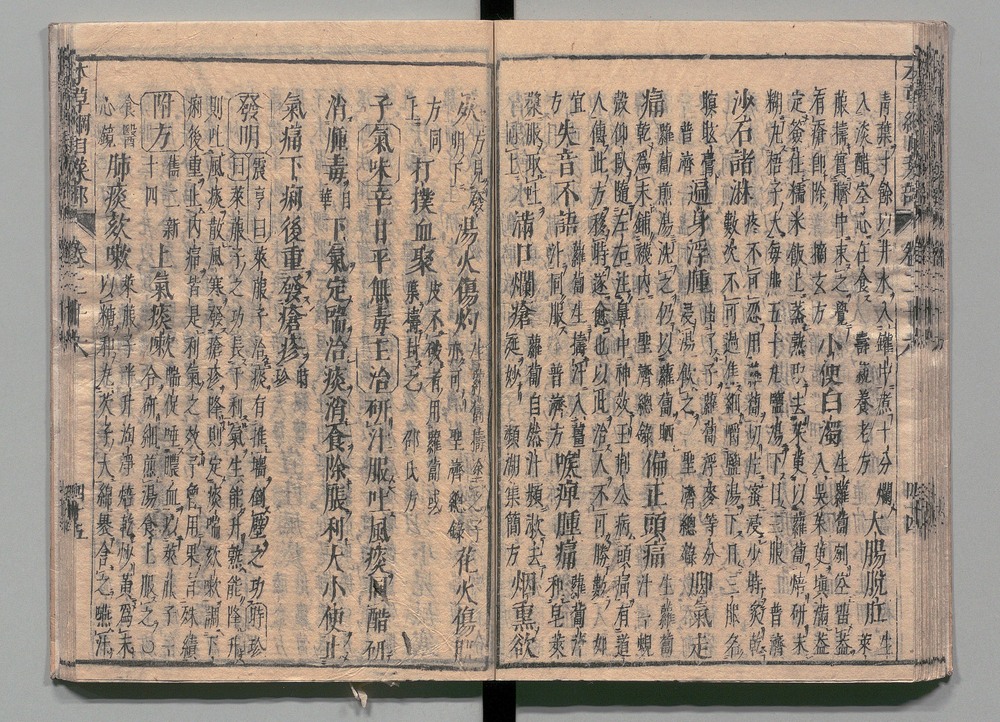 青葉寸餘以井水入罐中煮十分爛
入淡醋空心任食 壽親養老方
大腸脫肛
生萊
菔擣實臍中束之覺
有瘡即除 摘玄方
小便白濁
生蘿蔔剜空留蓋
入吳茱萸填滿蓋
定簽住糯米飯上蒸熟取去茱萸以蘿蔔焙研末
糊丸梧子大每服五十丸鹽湯下日三服 普濟
沙石諸淋
疼不可忍用蘿蔔切片蜜浸少時炙乾
數次不可過焦細嚼鹽湯下日三服名
瞑眩膏
普濟
遍身浮腫
出了子蘿蔔浮麥等分
浸湯飲之 聖濟總錄
脚氣走
痛
蘿蔔煎湯洗之仍以蘿蔔晒
乾爲末鋪襪內 聖濟總錄
偏正頭痛
生蘿蔔
汁蜆
殼仰臥隨左右注鼻中神效王荆公病頭痛有道
人傳此方移時遂愈也以此治人不可勝數 如
宜
方
失音不語
蘿蔔生擣汁入薑
汁同服 普濟方
喉痺腫痛
蘿蔔汁
和皂莢
漿服取吐
同上
滿口爛瘡
蘿蔔自然汁頻漱去
涎妙 瀕湖集簡方
烟熏欲
死
方見發
明下
湯火傷灼
生蘿蔔擣塗之子
亦可 聖濟總錄
花火傷肌
方同
上
打撲血聚
皮不破者用蘿蔔或
葉擣封之 邵氏方
子氣味辛甘平無毒主治研汁服吐風痰同醋研
消腫毒日華下氣定喘治痰消食除脹利大小便止
氣痛下痢後重發瘡疹時珍
發明
震亨曰萊菔子治痰有推墻倒壁之功時珍
曰萊菔子之功長于利氣生能升熟能降升
則吐風痰散風寒發瘡疹降則定痰喘欬嗽調下
痢後重止內痛皆是利氣之效予曾用果有殊績
附方
舊二新
十四
上氣痰嗽
喘促唾膿血以萊菔子一
合研細煎湯食上服之○
食醫
心鏡
肺痰欬嗽
萊菔子半升淘淨焙乾炒黃爲末
以糖和丸芡子大綿裹含之嚥汁
本草綱目菜部 卷之二十六 四十五